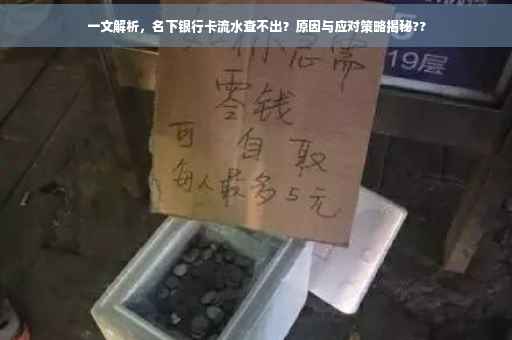 一文解析，名下银行卡流水查不出？原因与应对策略揭秘??
你急需
零钱
可自取
每人最多5元
5
19层